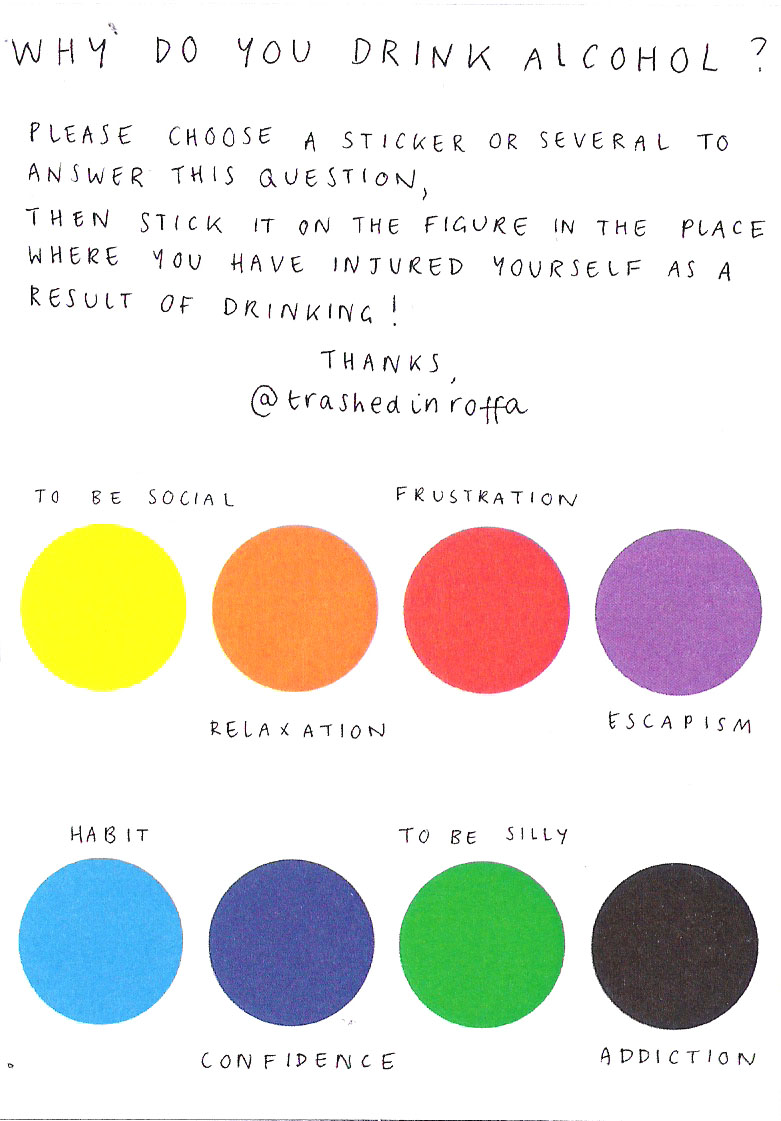 WHY DO YOU DRINK ALCOHOL ?
PLEASE CHOOSE A STICKER OR SEVERAL TO
ANSWER THIS QUESTION,
THEN STICK IT ON THE FIGURE IN THE PLACE
WHERE YOU HAVE INJURED YOURSELF AS A
RESULT OF DRINKING!
THANKS,
@trashedinroffa
TO BE SOCIAL
FRUSTRATION
RELAXATION
ESCAPISM
HABIT
TO BE SILLY
CONFIDENCE
ADDICTION